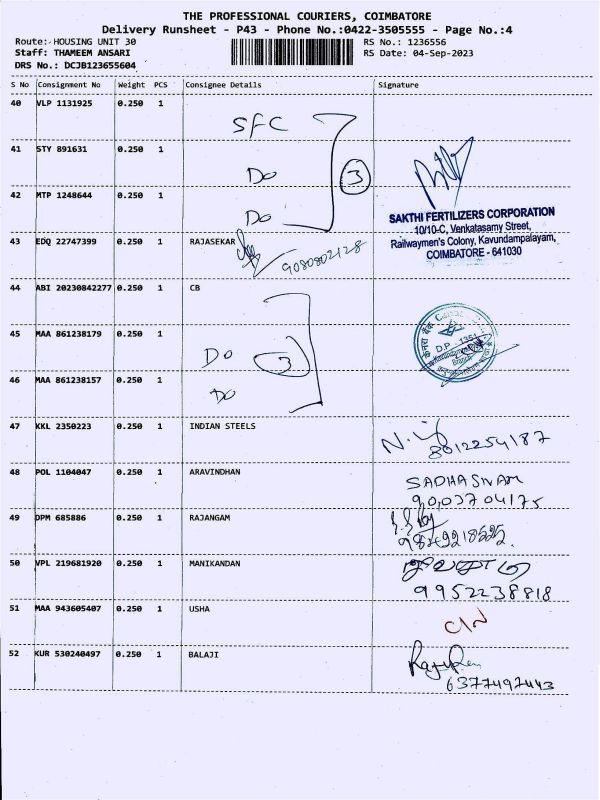 THE PROFESSIONAL COURIERS, COIMBATORE
Delivery Runsheet - P43 - Phone No.:0422-3505555 - Page No.:4
Route:- HOUSING UNIT 30 RS No.: 1236556
Staff: THAMEEM ANSARI RS Date: 04-Sep-2023
DRS No.: DCJB123655604
S No Consignment No Weight PCS Consignee Details Signature
40 VLP 1131925 0.250 1
SFC
41 STY 891631 0.250 1
Do 3
42 MTP 1248644 0.250 1
Do
SAKTHI FERTILIZERS CORPORATION
10/10-C, Venkatasamy Street,
Railwaymen's Colony, Kavundampalayam,
COIMBATORE - 641030
43 EDQ 22747399 0.250 1 RAJASEKAR
9080802128
44 ABI 20230842277 0.250 1 CB
45 MAA 861238179 0.250 1
Do 3
D.P. - 1361
46 MAA 861238157 0.250 1
Do
47 KKL 2350223 0.250 1 INDIAN STEELS
8012254187
48 POL 1104047 0.250 1 ARAVINDHAN
SADHASIVAM
9003704175
49 DPM 685886 0.250 1 RAJANGAM
50 VPL 219681920 0.250 1 MANIKANDAN
9952238818
51 MAA 943605407 0.250 1 USHA
C/N
52 KUR 530240497 0.250 1 BALAJI
6377497443